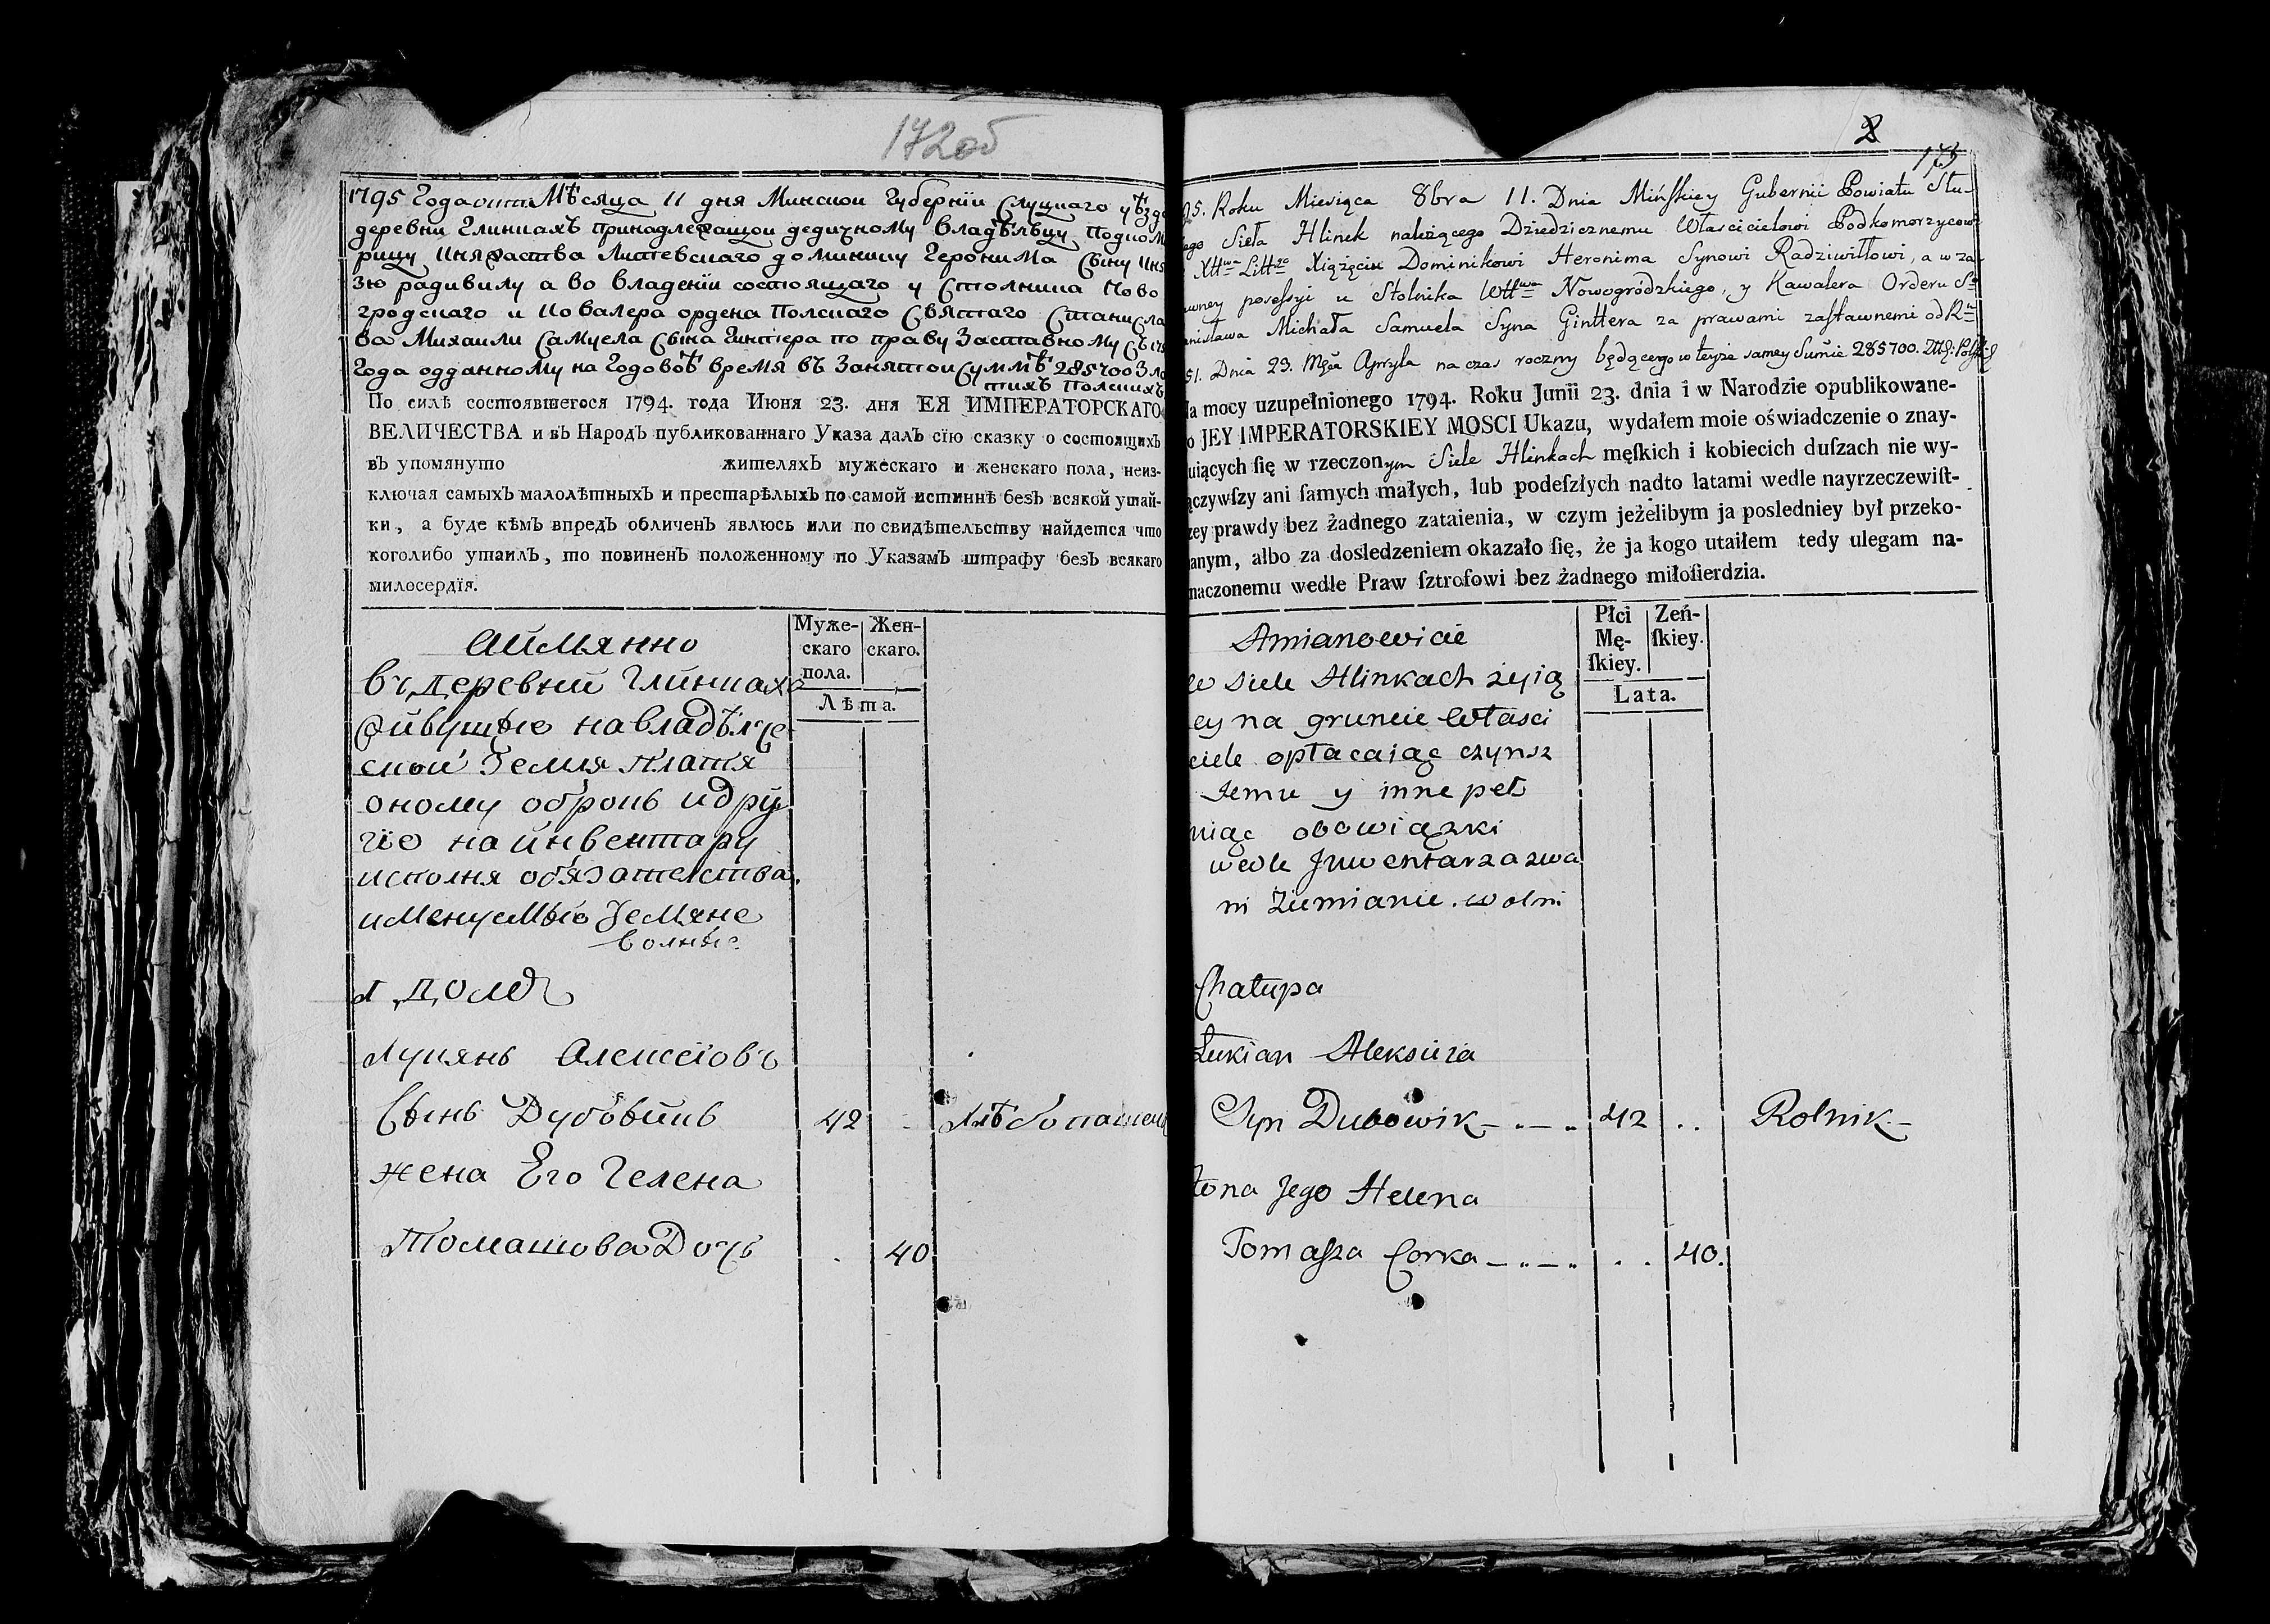 172об
1795 Года окт. Мѣсяца 11 дня Минской Губернїи Слуцкаго уѣзда
деревни Глинкахъ принадлежащой дедичному владѣльцу Подком
рицу Княжества Литевскаго доминику Геронима Сыну Кня
зю радивилу а во владенїи состоящаго у Столника Ново
гродскаго и Ковалера ордена Полскаго Святаго Станисла
ва Михаили Самуела Сына Гинтера по праву Заставному
Года одданному на Годовоѣ время въ Занятои Суммѣ 285700 Зло
тихъ Полскихъ
По силѣ состоявшегося 1794. года Июня 23. дня ЕЯ ИМПЕРАТОРСКАГО
ВЕЛИЧЕСТВА и вЪ НародЪ публикованнаго Указа далЪ сїю сказку о состоящихЪ
вЪ упомянуто жителяхЪ мужескаго и женскаго пола, неиз-
ключая самыхЪ малолѣтныхЪ и престарѣлыхЪ по самой истиннѣ безЪ всякой утай-
ки, а буде кѣмЪ впредЪ обличенЪ явлюсь или по свидѣтельству найдется что
коголибо утаилЪ, то повиненЪ положенному по УказамЪ штрафу безЪ всякаго
милосердїя.
Муже-
скаго
пола.
Жен-
скаго.
Лѣта.
Аимянно
Въ деревни Глинкахъ
живущїе на владѣлче
ской Земля платя
оному оброкъ и дру
гїе на инвентару
исполня обязателства.
именуемые Земяне
волные
1 домъ
Лукянъ Алексїовъ
Сынъ Дубовикъ 42 - Хлѣбопашец
жена Его Гелена
Томашова Дочь . 40
2
173
95. Roku Miesiąca 8bra 11. Dnia Mińskiey Gubernii Powiatu Słu-
ego Sieła Hlinek należącego Dziedzicznemu Własciecielowi Podkomorzycow
Xttwa Littgo Xiążęciu Dominikowi Heronima Synowi Radziwiłłowi, a w za-
awney posessyi u Stolnika Wttwa Nowogródzkiego, y Kawalera Orderu Sgo
anisława Michała Samuela Syna Ginttera za prawami zastawnemi od Ru
51. Dnia 23. Mca Apryla na czas roczny będącego w teyże samey Sumie 285700. Złł: Polskich
Na mocy uzupełnionego 1794. Roku Junii 23. dnia i w Narodzie opublikowane-
o JEY IMPERATORSKIEY MOSCI Ukazu, wydałem moie oświadczenie o znay-
uiących ſię w rzeczonym Siele Hlinkach męſkich i kobiecich duſzach nie wy-
ączywſzy ani ſamych małych, lub podeſzłych nadto latami wedle nayrzeczewiſt-
zey prawdy bez żadnego zataienia, w czym jeżelibym ja posledniey był przeko-
anym, albo za dosledzeniem okazało ſię, że ja kogo utaiłem tedy ulegam na-
naczonemu wedle Praw ſztrofowi bez żadnego miłoſierdzia.
Płci
Mę-
ſkiey.
Zeń-
ſkiey.
Lata.
Amianowicie
w Siele Hlinkach żyią
cy na gruncie Własci
ciele opłacaiąc czynsz
Jemu y inne peł
niąc obowiązki
wedle Jnwentarza zwa
ni Ziemianie. wolni
Chałupa
Łukian Aleksieia
Syn Dubowik 42 .. Rolnik.
Żona Jego Helena
Tomaſza Corka .. 40.